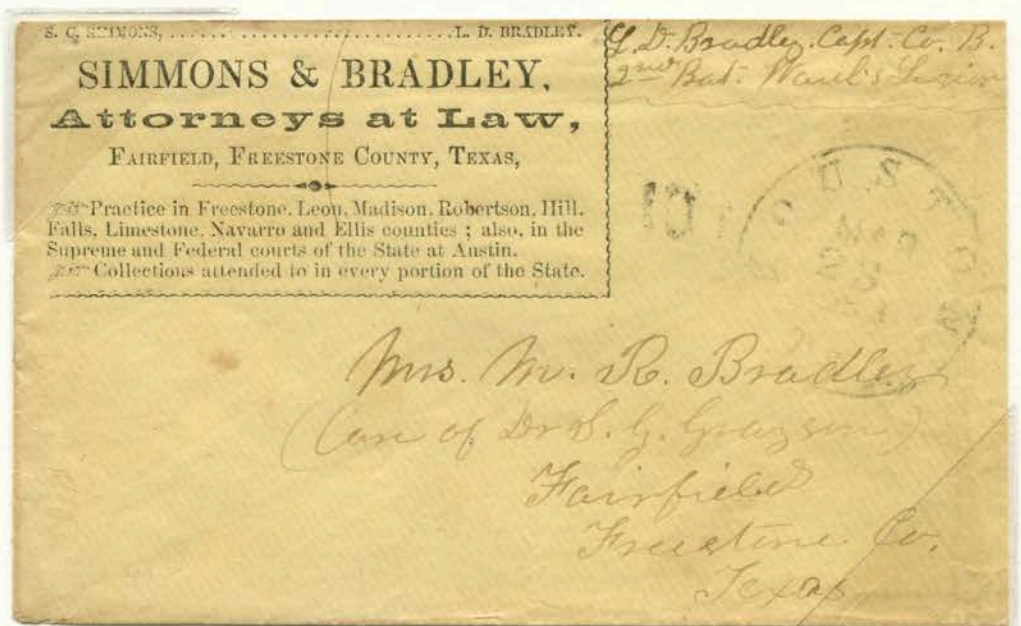 S. C. SIMMONS, . . . . . . . . . . . . . . . . . . . . . . . . . . . L. D. BRADLEY.
SIMMONS & BRADLEY,
Attorneys at Law,
FAIRFIELD, FREESTONE COUNTY, TEXAS,
Practice in Freestone, Leon, Madison, Robertson, Hill,
Falls, Limestone, Navarro and Ellis counties ; also, in the
Supreme and Federal courts of the State at Austin.
Collections attended to in every portion of the State.
L. D. Bradley, Capt. Co. B.
2nd Bat. Waul's Legion
10
Mrs. M. R. Bradley
(Care of Dr S. G. Grayson)
Fairfield
Freestone Co.
Texas